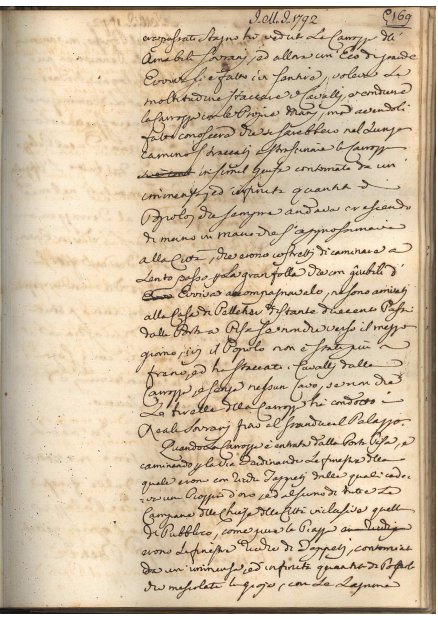 J.M.J. 1792 C 169
Stagno hà vedute le Carrozze delli
Amabili Sovrani, ed allora un Eco di grande
Evviva si è fatto in sentire, voleva la
moltitudine staccare i Cavalli, e condurre
le Carrozze con le Proprie Mani, ma avendoli
fatto conoscere che si sarebbero nel Lungo
camino straccati a strascinare le Carrozze
in simil guisa contornate da un
immenso, ed infinita quantità di
Popolo, che sempre andava crescendo
di mano in mano che s'approssimava
alla Città, che erono costretti di caminare a
Lento passo p la gran folla che con giubili, d
Evviva accompagnavelo, ne sono arrivati
alla Casa di Pelletier distante duecento Passi
dalla Porta a Pisa verso il mezzo
giorno, il Popolo non è stato più a
freno, ed hà staccati i Cavalli dalle
Carrozze, e senza nessun Cavo, se non che
Le tirelle della Carrozza hà condotto i
Reali Sovrani fino al Granducal Palazzo.
Quando la Carrozza è entrata dalla Porta Pisa, e
caminando p la Via Ferdinanda Le finestre della
quale erono con Tappeti dalle quali cade-
va un Pioggia d'oro, ed al suono di tutte Le
Campane delle Chiese della Città inclusive quelle
di Pubblico, come pure le Piazze
erono Le finestre di Tappeti, contornate
da un immenso, ed infinita quantità di Popolo
che mescolate le gioje, con Le Lagrime